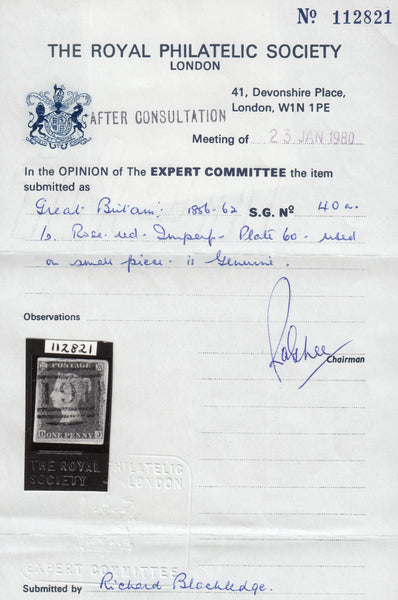 Nº 112821
THE ROYAL PHILATELIC SOCIETY
LONDON
41, Devonshire Place,
London, W1N 1PE
AFTER CONSULTATION
Meeting of 23 JAN 1980
In the OPINION of The EXPERT COMMITTEE the item
submitted as
Great Britain; 1856-62 S.G. Nº 40a.
Rose-red - Imperf - Plate 60 - used
on small piece - is Genuine.
Observations
Chairman
112821
POSTAGE
ONE PENNY
THE ROYAL PHILATELIC
SOCIETY LONDON
EXPERT COMMITTEE
Submitted by Richard Blackledge.